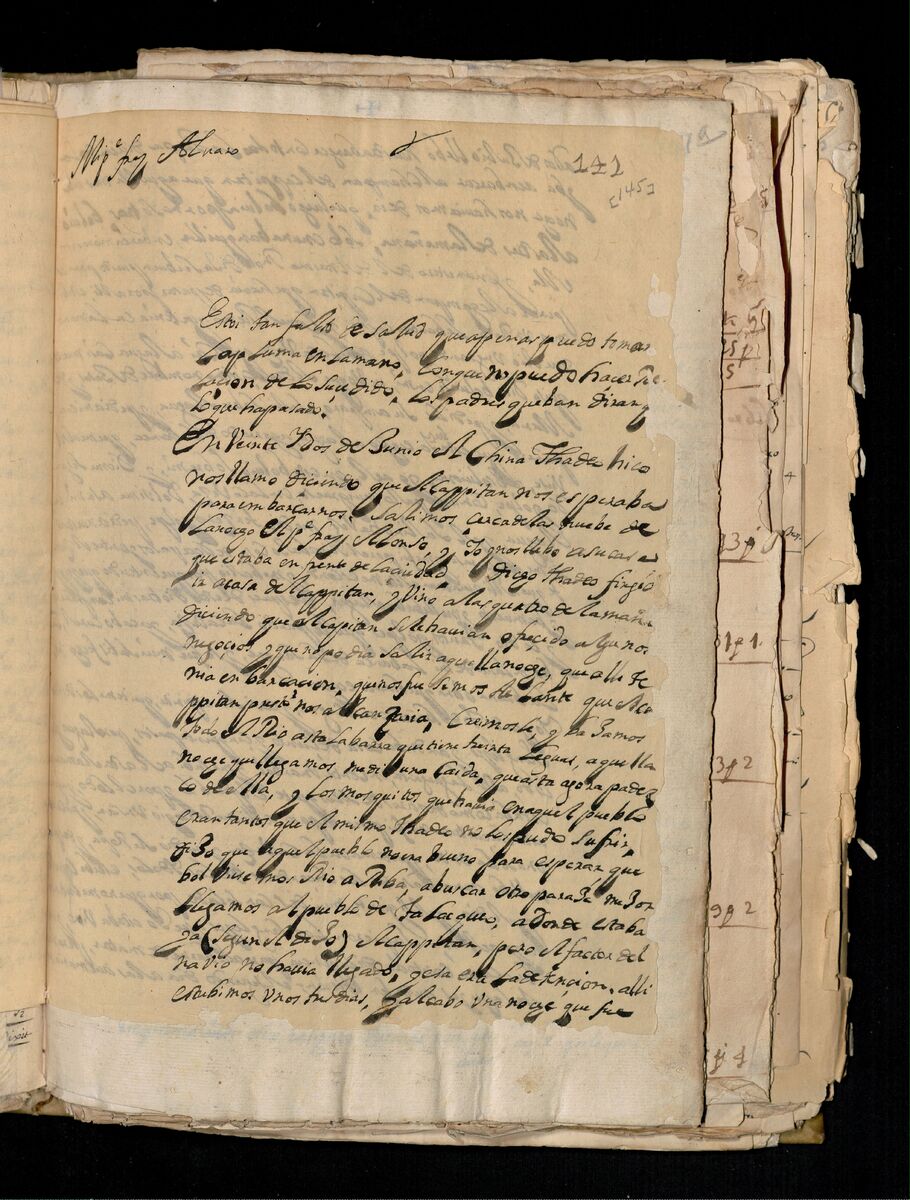 Mi pe fray Alvaro
141
[145]
Estoi tan falto de salud que apenas puedo tomar
la pluma en la mano, con que no puedo hacer Re-
lacion de lo sucedido. los padres que ban diran
lo que ha pasado.
En veinte y dos de Junio el China Thadeo hico
nos llamo diciendo que el Cappitan nos esperaba
para embarcarnos. Salimos cerca de las nuebe de
la noce el pe fray Alonso, y yo y nos llebo a su casa
que estaba en frente de la ciudad. Diego Thadeo fingio
ir a casa del Cappitan, y vino a las quatro de la maña
diciendo que el Capitan se le havian ofrecido algunos
negocios, y que no podia salir aquella noce, que alli te
nia embarcacion, que nos fuesemos adelante que el Ca
ppitan presto nos alcanzaria, Creimosle, y baxamos
todo el Rio asta la barra que tiene treinta leguas, aquella
noce que llegamos me di una caida, que asta agora padez
co de ella, y los mosquitos que havia en aquel pueblo
eran tantos que el mismo Thadeo no los pudo sufrir,
dixo que aquel pueblo no era bueno para esperar que
bolviesemos Rio aRiba, a buscar otro paraxe mexor
llegamos al pueblo de adonde estaba
ya (segun el dixo) el Cappitan, pero el factor del
navio no havia llegado, y esa era la detencion. alli
estubimos unos tres dias, y al cabo una noce que fue
23p
31p1.
3p2
9p2